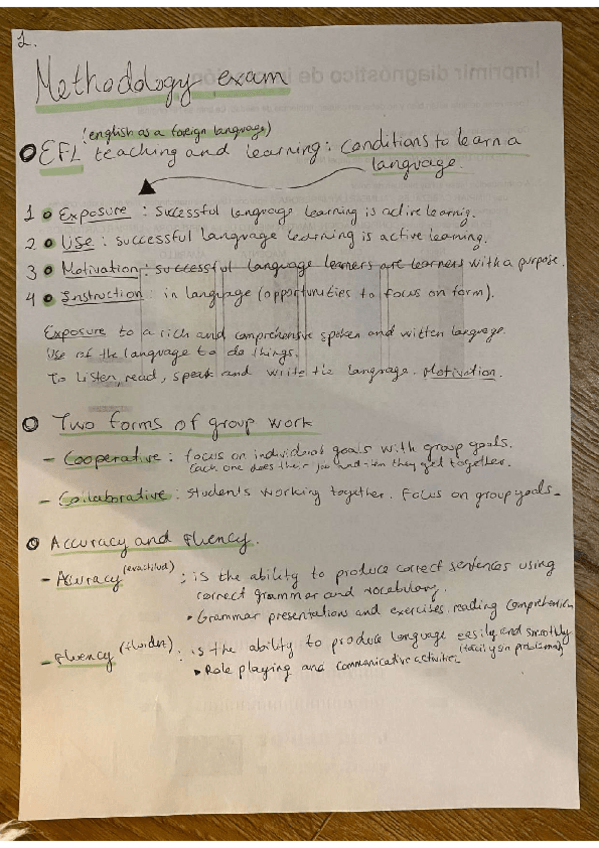 1.
Methodology exam
(english as a foreign language)
EFL teaching and learning: conditions to learn a
language.
1 Exposure: successful language learning is active learnig.
2 Use: successful language learning is active learning.
3 Motivation: successful language learners are learners with a purpose.
4 Instruction: in language (opportunities to focus on form).
Exposure to a rich and comprehensive spoken and written language.
Use of the language to do things.
To listen, read, speak and write the language. Motivation.
Two forms of group work
- Cooperative: focus on individual goals with group goals.
Each one does their job and then they get together.
- Collaborative: students working together. Focus on group goals.
Accuracy and fluency.
- Accuracy (exactitud): is the ability to produce correct sentences using
correct grammar and vocabulary.
• Grammar presentations and exercises, reading comprehension
- Fluency (fluidez): is the ability to produce language easily and smoothly
(fácil y sin problemas)
• Role playing and communicative activities
Imprimir diagnóstico de